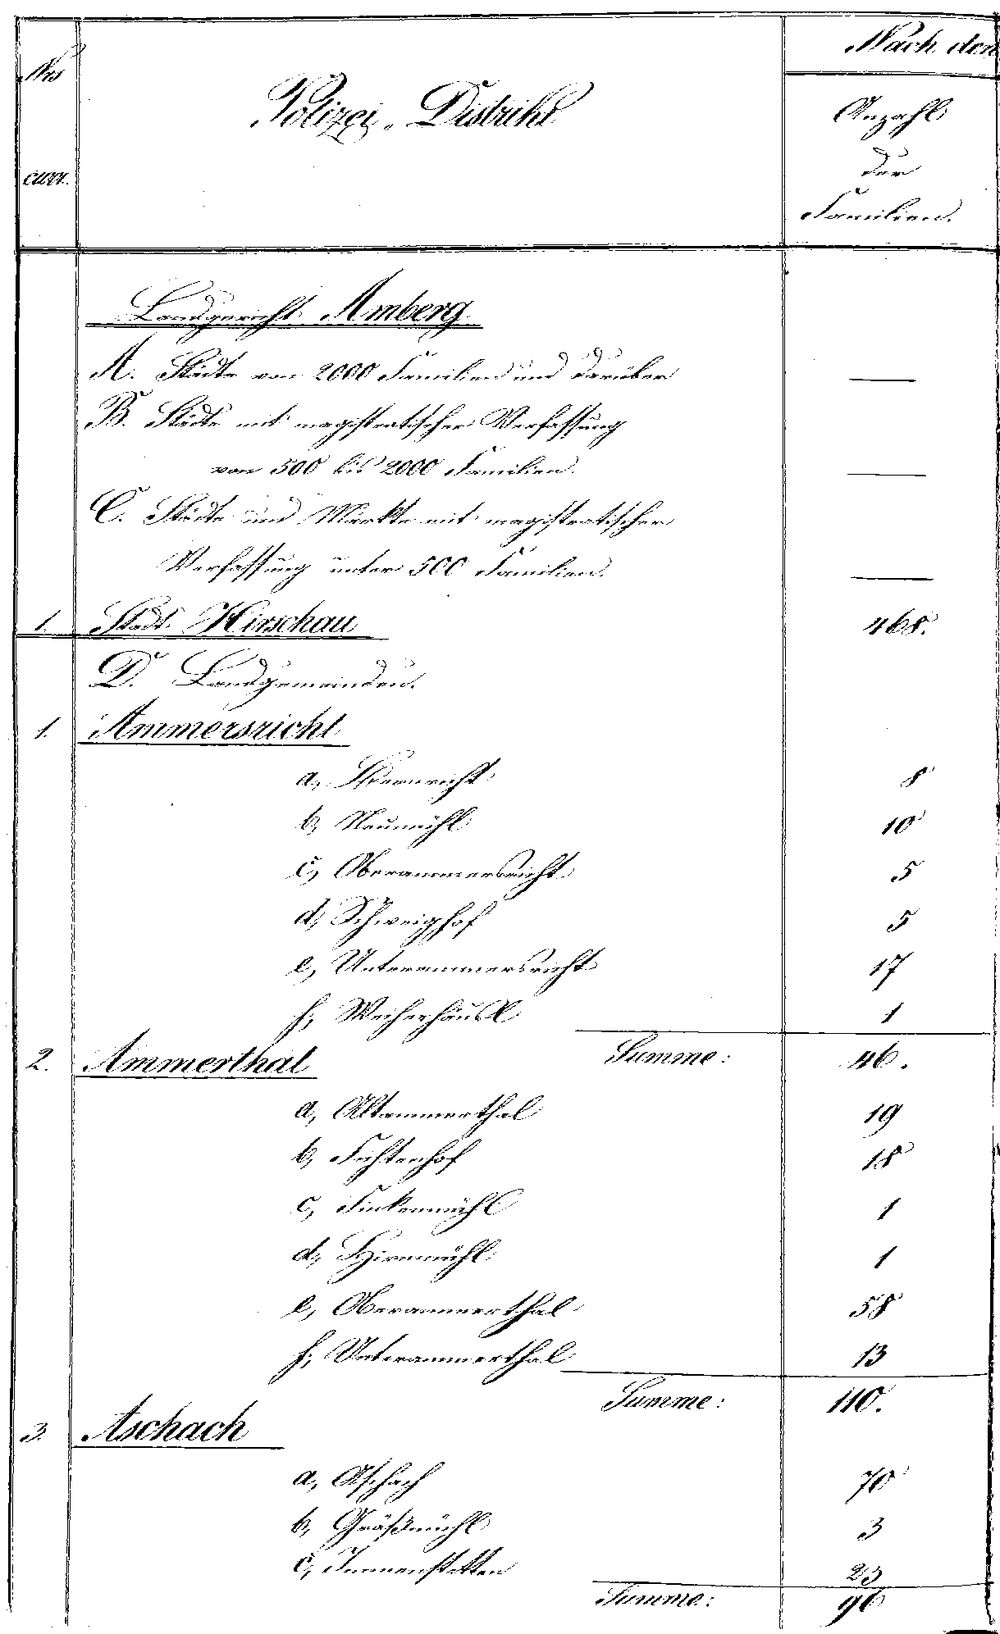 Nrs
curr.
Polizei-Distrikt
Nach den
Anzahl
der
Familien.
Landgericht Amberg.
A. Städte von 2000 Familien und darüber —
B. Städte mit magistratischer Verfassung
von 500 bis 2000 Familien. —
C. Städte und Märkte mit magistratischer
Verfassung unter 500 Familien. —
1. Stadt Hirschau 468.
D. Landgemeinden.
1. Ammersricht
a, 8
b, Neumühl 10
c, Oberammersricht 5
d, Schweighof 5
e, Unterammersricht 17
f, Weiherhäusl 1
Summe: 46.
2. Ammerthal
a, Altammerthal 19
b, Fichtenhof 18
c, Finkenmühl 1
d, Hirnmühl 1
e, Oberammerthal 58
f, Unterammerthal 13
Summe: 110.
3. Aschach
a, Aschach 70
b, Gräßlmühl 3
c, Immenstetten 23
Summe: 96